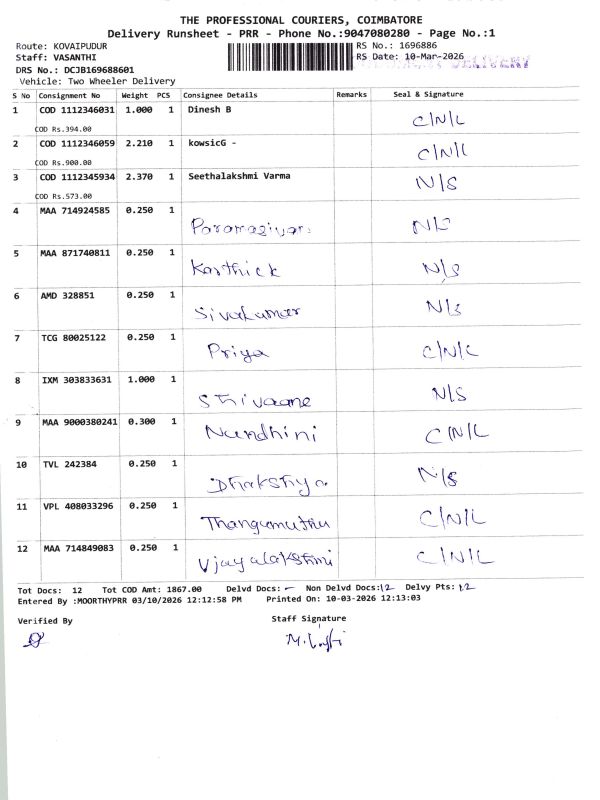 THE PROFESSIONAL COURIERS, COIMBATORE
Delivery Runsheet - PRR - Phone No.:9047080280 - Page No.:1
Route: KOVAIPUDUR RS No.: 1696886
Staff: VASANTHI RS Date: 10-Mar-2026 DELIVERY
DRS No.: DCJB169688601
Vehicle: Two Wheeler Delivery
S No Consignment No Weight PCS Consignee Details Remarks Seal & Signature
1 COD 1112346031 1.000 1 Dinesh B C/N/L
COD Rs.394.00
2 COD 1112346059 2.210 1 kowsicG - C/N/L
COD Rs.900.00
3 COD 1112345934 2.370 1 Seethalakshmi Varma N/S
COD Rs.573.00
4 MAA 714924585 0.250 1
5 MAA 871740811 0.250 1 Karthick N/S
6 AMD 328851 0.250 1 Sivakumar N/S
7 TCG 80025122 0.250 1 Priya C/N/L
8 IXM 303833631 1.000 1 N/S
9 MAA 9000380241 0.300 1 Nandhini C/N/L
10 TVL 242384 0.250 1 Dhakshya N/S
11 VPL 408033296 0.250 1 Thangamuthu C/N/L
12 MAA 714849083 0.250 1 Vjayalakshmi C/N/L
Tot Docs: 12 Tot COD Amt: 1867.00 Delvd Docs: — Non Delvd Docs:12 Delvy Pts: 12
Entered By :MOORTHYPRR 03/10/2026 12:12:58 PM Printed On: 10-03-2026 12:13:03
Verified By Staff Signature